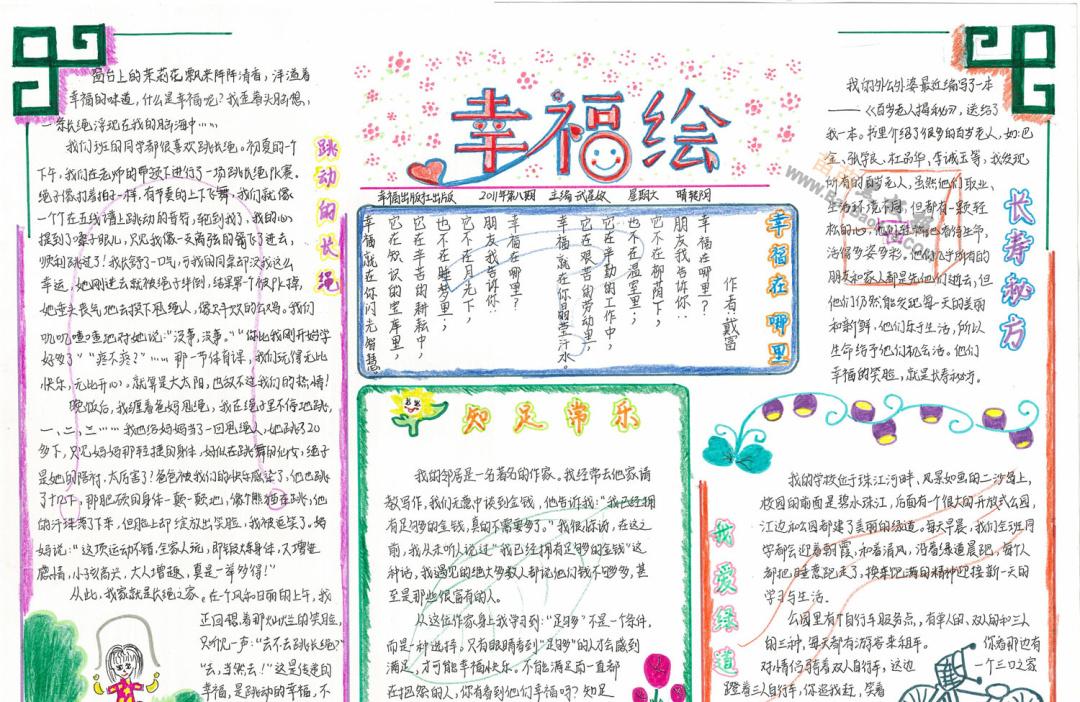 幸福绘
幸福出版社出版 2011年第八期 主编 武嘉敏 星期六 晴转阴
跳动的长绳
窗台上的茉莉花飘来阵阵清香，洋溢着
幸福的味道，什么是幸福呢？我歪着头脑想，
一条长绳浮现在我的脑海中……
我们班的同学都很喜欢跳长绳。初夏的一个
下午，我们在老师的带领下进行了一场跳长绳比赛。
绳子像打着拍一样，有节奏的上下飞舞，我们就像
一个个在五线谱上跳动的音符，轮到我了，我的心
提到了嗓子眼儿，只见我像一支离弦的箭飞了进去，
顺利跳过了！我长舒了一口气，可我的同桌却没我这么
幸运，她刚进去就被绳子绊倒，结果第一个被
她垂头丧气地去换下甩绳人，像只斗败的公鸡。我们
叽叽喳喳地对她说：“没事，没事。”“你比我刚开始学
好多了”“疼不疼？”……那一节体育课，我们玩得无比
快乐，无比开心。就算是大太阳，也敌不过我们的热情！
晚饭后，我缠着爸妈甩绳，我在绳子里不停地跳，
一，二，三……我也给妈妈当了一回甩绳人，她跳了20
多下，只见妈妈那轻捷的身体，好似在跳舞的仙女，绳子
是她的陪衬，太厉害了！爸爸被我们的快乐感染了，他也跳
了十几下，那肥硕的身体一颠一颠地，像个熊猫在跳，他
的汗珠落了下来，但脸上却绽放出笑脸，我被逗笑了。妈
妈说：“这项运动不错，全家人玩，即锻炼身体，又增进
感情，小孩高兴，大人增趣，真是一举多得！”
从此，我家就是长绳之家。在一个风和日丽的上午，我
正回忆着那灿烂的笑脸，
只听见一声：“去不去跳长绳？”
“去，当然去！”这是传递的
幸福，是跳动的幸福，不
幸福在哪里
作者 戴富
幸福在哪里？
朋友我告诉你：
它不在柳荫下，
也不在温室里；
它在辛勤的工作中，
它在艰苦的劳动里，
幸福就在你晶莹汗水。
幸福在哪里？
朋友我告诉你：
它不在月光下，
也不在睡梦里；
它在辛苦的耕耘中，
它在知识的宝库里，
幸福就在你闪光智慧。
知足常乐
我的邻居是一名著名的作家。我经常去他家请
教写作，我们无意中谈到金钱，他告诉我：“我已经拥
有足够的金钱，真的不需要多了。”我很惊讶，在这之
前，我从未听人说过“我已经拥有足够的金钱”这
种话，我遇见的绝大多数人都说他们钱不够多，甚
至是那些很富有的人。
从这位作家身上我学习到：“足够”不是一个条件，
而是一种选择。只有眼睛看到“足够”的人才会感到
满足，才可能幸福快乐。不能满足而一直都
在抱怨的人，你有看到他们幸福吗？知足
长寿秘方
我的外公外婆最近编写了一本
——《百岁老人揭秘》，送给了
我一本。书里介绍了很多的百岁老人，如：巴
金、张学良、杜品华、李诚玉等，我发现
所有的百岁老人，虽然他们职业、
生活环境不同，但都有一颗轻
松的心。
活得多姿多彩。
朋友和家人都是先他们逝去，但
他们仍然能发现每一天的美丽
和新鲜，他们乐于生活，所以
生命给予他们机会活。他们
幸福的笑脸，就是长寿秘方。
我爱绿道
我的学校位于珠江河畔，风景如画的二沙岛上，
校园的前面是碧水珠江，后面有个很大的开放式公园，
江边和公园都建了美丽的绿道。每天早晨，我们全班同
学都会迎着朝霞，和着清风，沿着绿道晨跑，每个人
都把睡意跑走了，换来饱满的精神迎接新一天的
学习与生活。
公园里有个自行车服务点，有单人的，双人的和三人
的三种，每天都有游客来租车。 你看那边有
对情侣骑着双人自行车，这边 一个三口之家
蹬着三人自行车，你追我赶，笑着